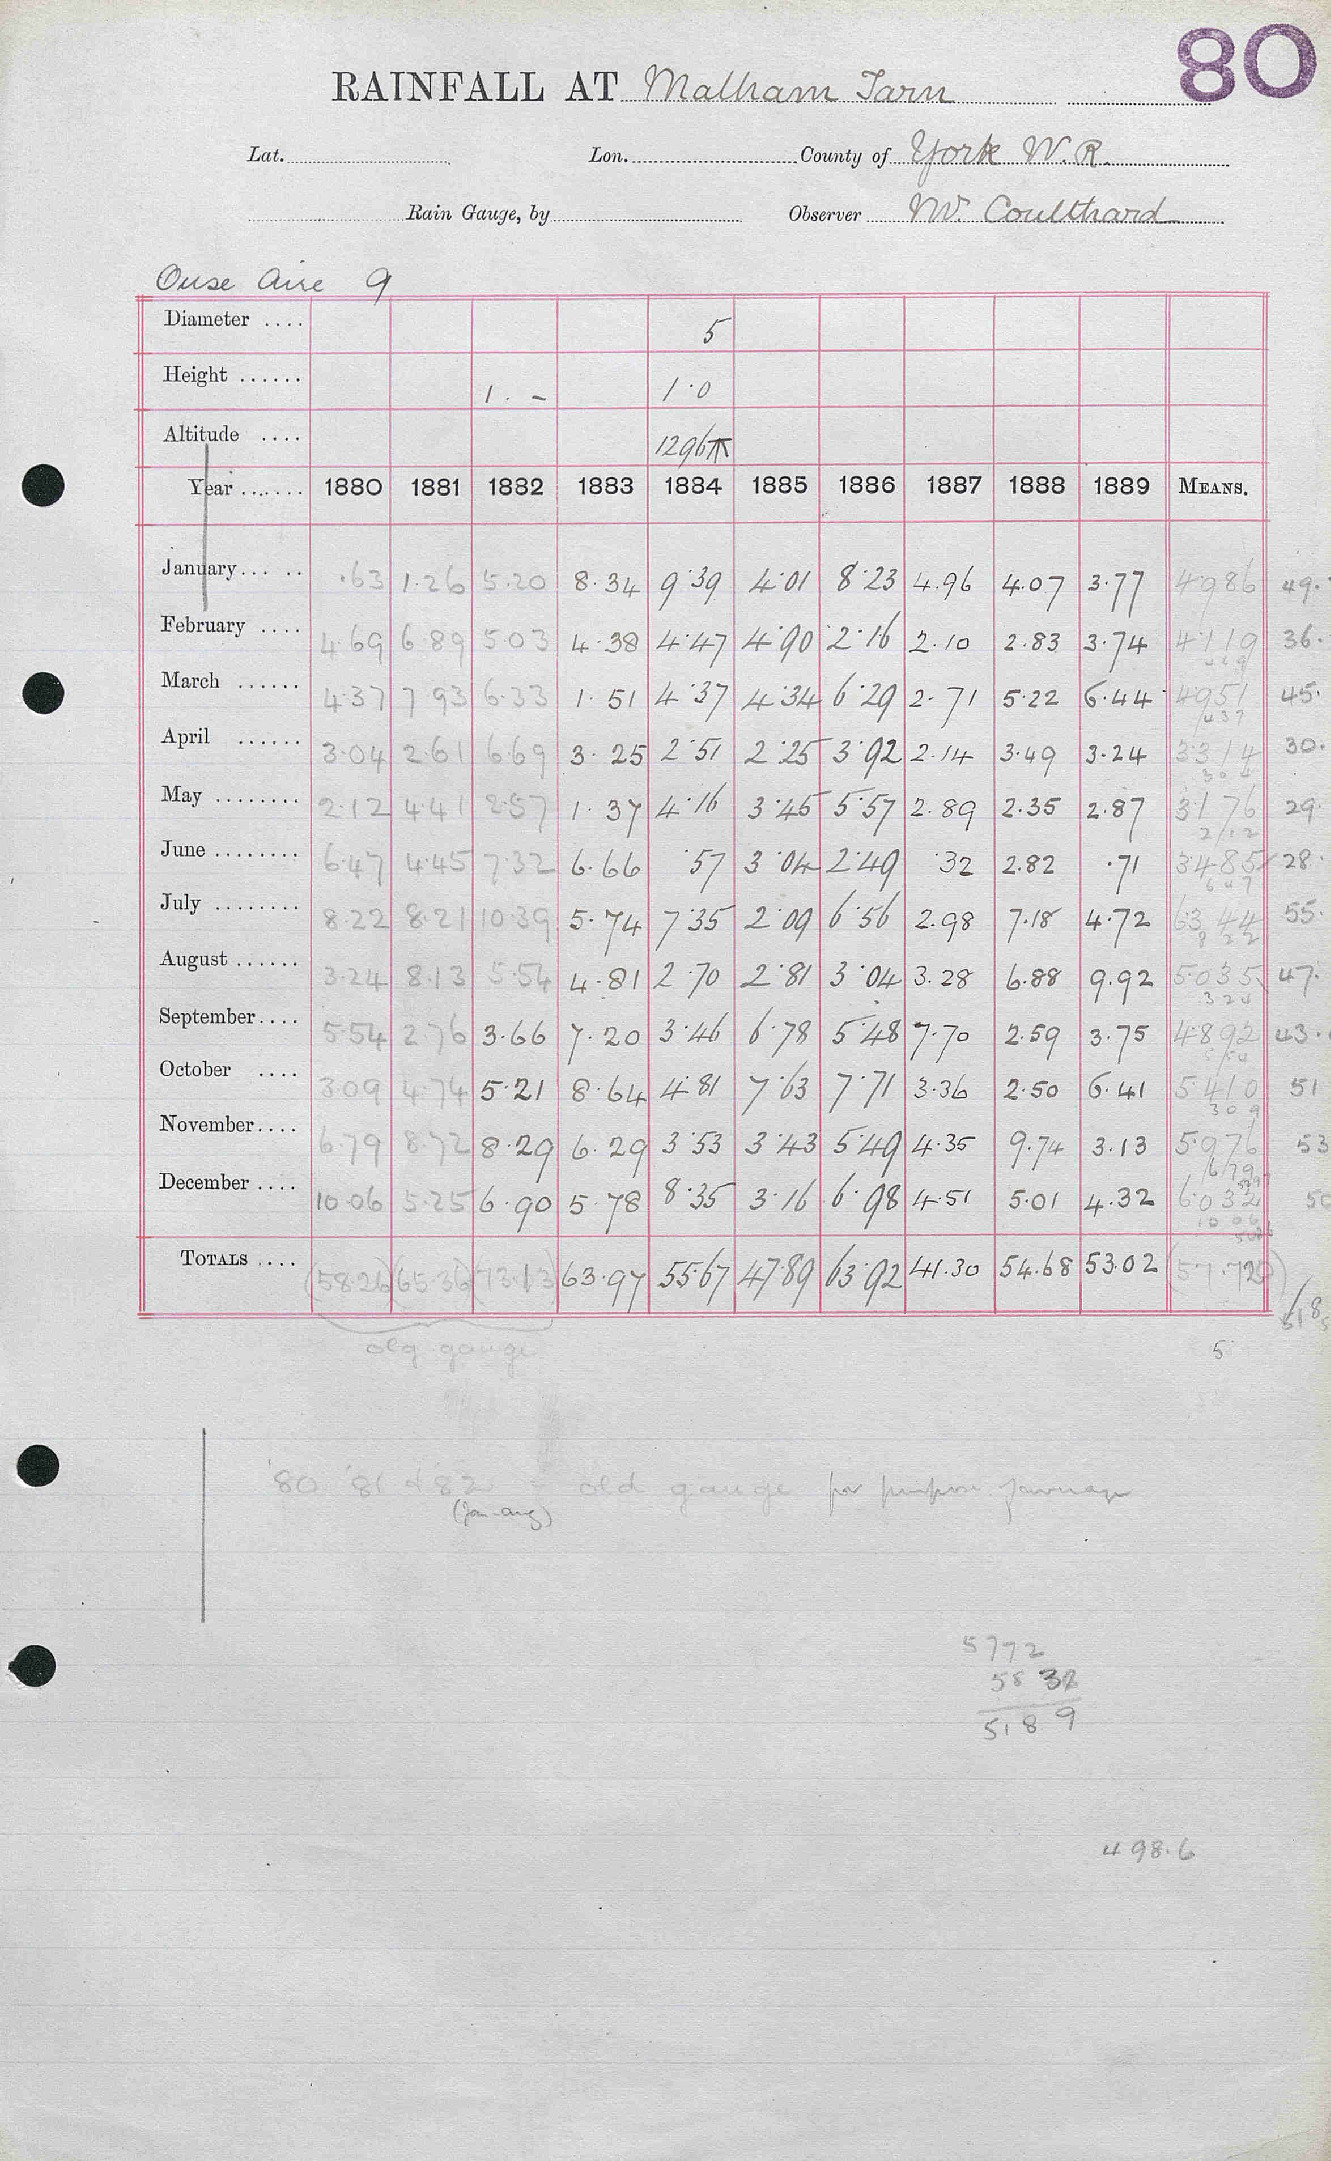 80
RAINFALL AT Malham Tarn
Lat. Lon. County of York W.R.
Rain Gauge, by Observer W. Coulthard
Ouse Aire 9
Diameter .... 5
Height ...... 1. - 1.0
Altitude .... 1296 ft
Year ....... 1880 1881 1882 1883 1884 1885 1886 1887 1888 1889 MEANS.
January ..... .63 1.26 5.20 8.34 9.39 4.01 8.23 4.96 4.07 3.77 4.986 49.
February .... 4.69 6.89 5.03 4.38 4.47 4.90 2.16 2.10 2.83 3.74 4.119 36.
469
March ...... 4.37 7.93 6.33 1.51 4.37 4.34 6.29 2.71 5.22 6.44 4.951 45.
437
April ...... 3.04 2.61 6.69 3.25 2.51 2.25 3.92 2.14 3.49 3.24 3.314 30.
304
May ........ 2.12 4.41 2.57 1.37 4.16 3.45 5.57 2.89 2.35 2.87 3.176 29
212
June ........ 6.47 4.45 7.32 6.66 .57 3.04 2.49 .32 2.82 .71 3.485 28.
647
July ........ 8.22 8.21 10.39 5.74 7.35 2.09 6.56 2.98 7.18 4.72 6.344 55.
822
August ...... 3.24 8.13 5.54 4.81 2.70 2.81 3.04 3.28 6.88 9.92 5.035 47.
324
September.... 5.54 2.76 3.66 7.20 3.46 6.78 5.48 7.70 2.59 3.75 4.892 43.
554
October .... 3.09 4.74 5.21 8.64 4.81 7.63 7.71 3.36 2.50 6.41 5.410 51
309
November.... 6.79 8.72 8.29 6.29 3.53 3.43 5.49 4.35 9.74 3.13 5.976 53
679
December .... 10.06 5.25 6.90 5.78 8.35 3.16 6.98 4.51 5.01 4.32 6.032 50
1006
TOTALS .... (58.26) (65.36) (73.13) 63.97 55.67 47.89 63.92 41.30 54.68 53.02 (57.720)
518
old gauge 5
'80 '81 & '82 - old gauge for purpose of average
(Jan-Aug)
5772
5832
5189
498.6